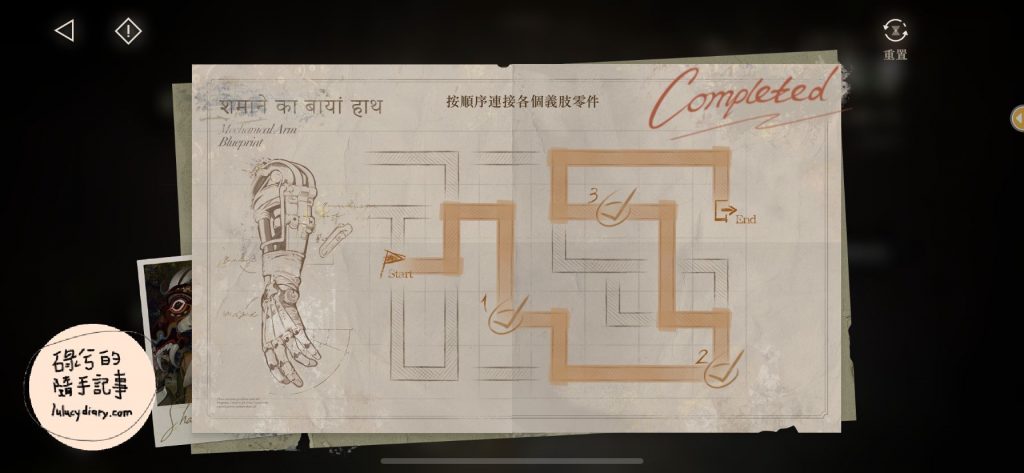 重置
शमाने का बायां हाथ
按順序連接各個義肢零件
Completed
Mechanical Arm
Blueprint
3
End
Start
1
2
碌兮的
隨手記事
lulucydiary.com